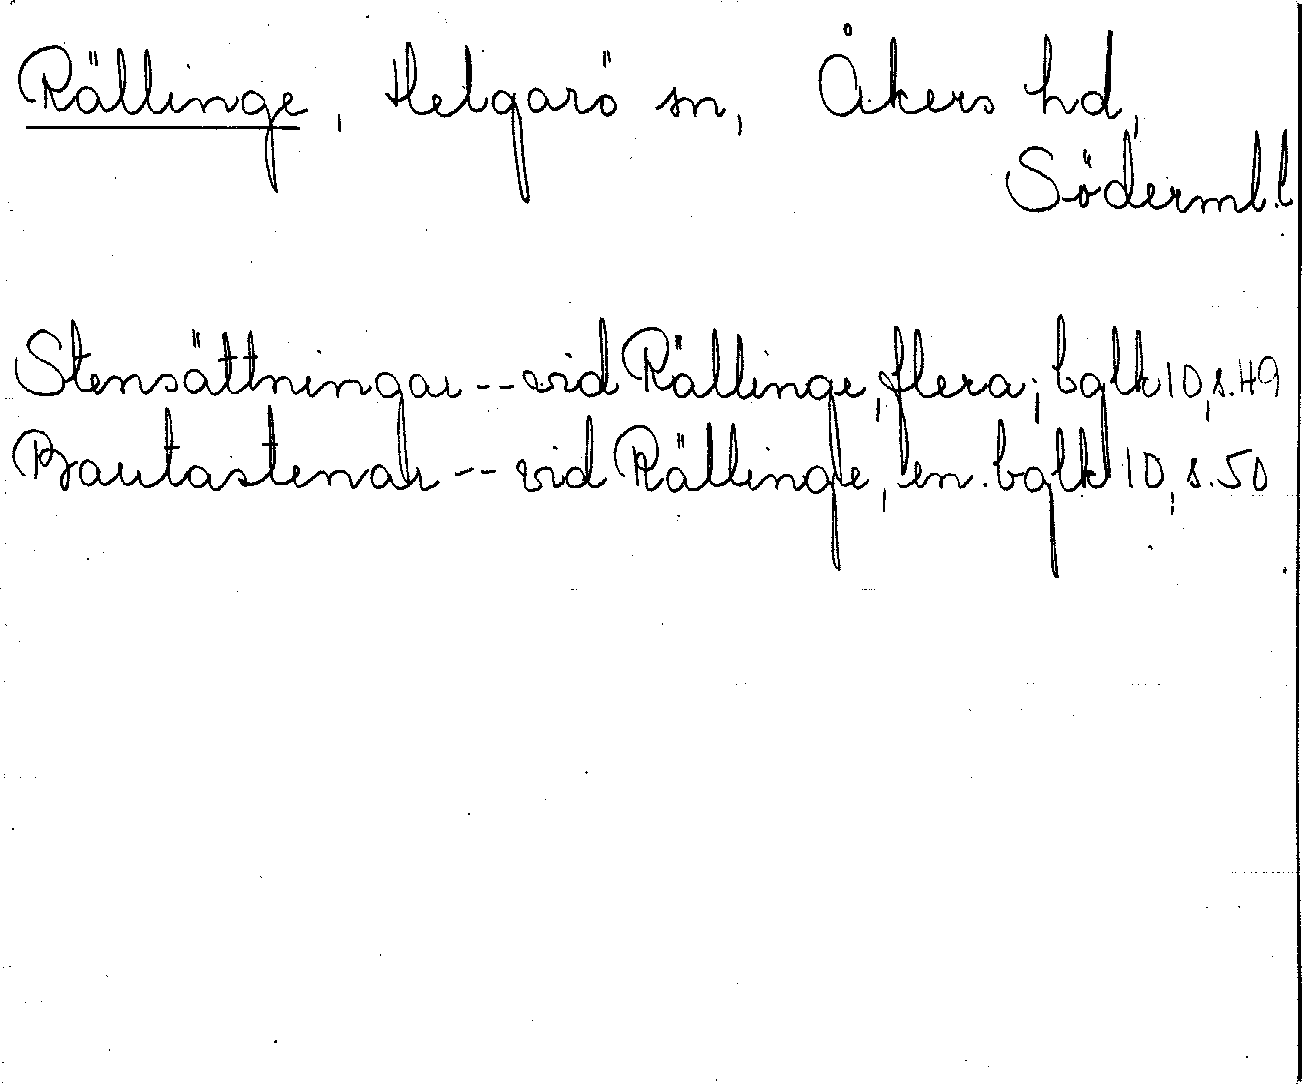 Rällinge, Helgarö sn, Åkers hd,
Söderml. l
Stensättningar -- vid Rällinge, flera; bglk 10, s. 49
Bautastenar -- vid Rällinge, en. bglk 10, s. 50